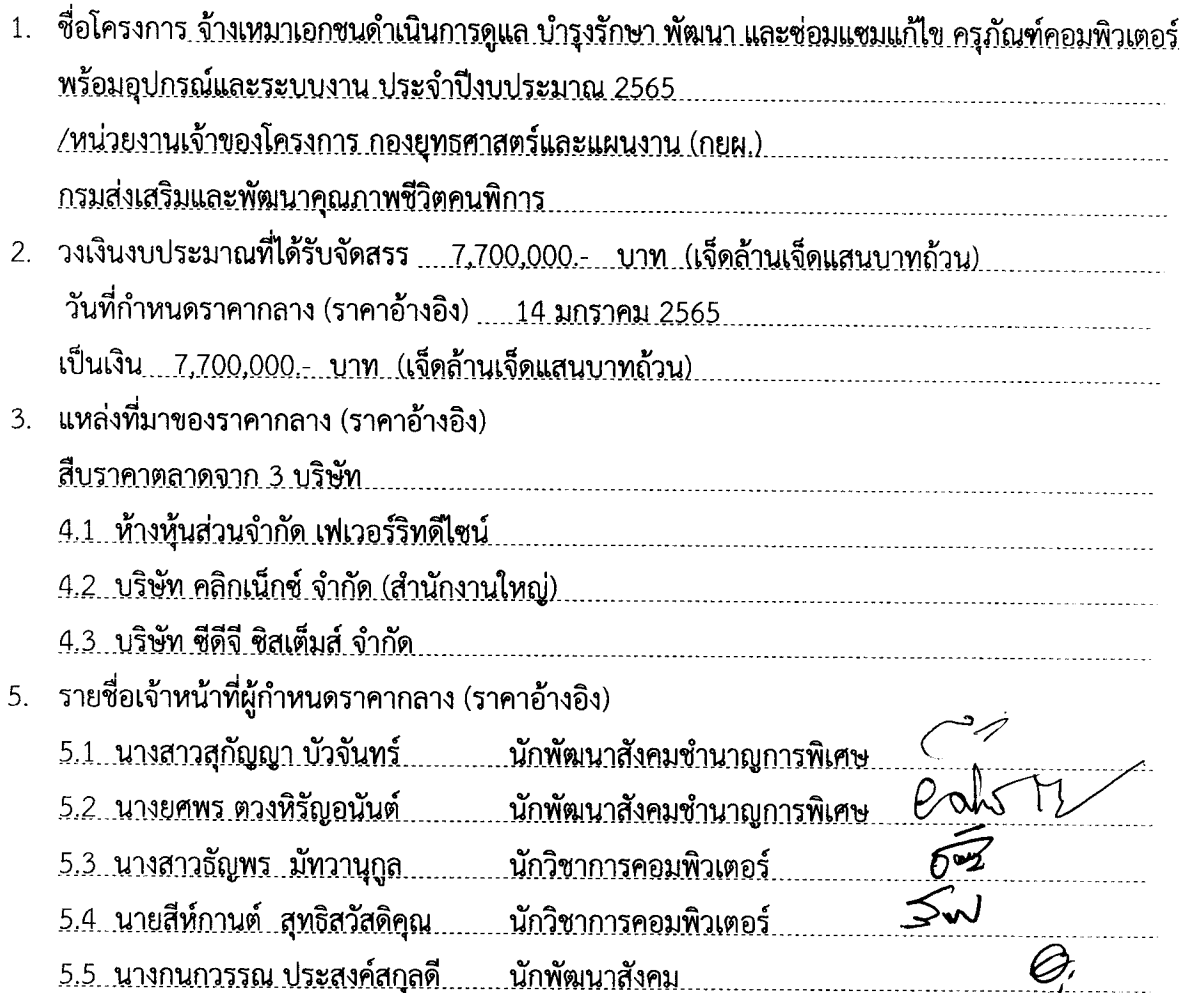 1. ชื่อโครงการ จ้างเหมาเอกชนดำเนินการดูแล บำรุงรักษา พัฒนา และซ่อมแซมแก้ไข ครุภัณฑ์คอมพิวเตอร์
พร้อมอุปกรณ์และระบบงาน ประจำปีงบประมาณ 2565
/หน่วยงานเจ้าของโครงการ กองยุทธศาสตร์และแผนงาน (กยผ.)
กรมส่งเสริมและพัฒนาคุณภาพชีวิตคนพิการ
2. วงเงินงบประมาณที่ได้รับจัดสรร 7,700,000.- บาท (เจ็ดล้านเจ็ดแสนบาทถ้วน)
วันที่กำหนดราคากลาง (ราคาอ้างอิง) 14 มกราคม 2565
เป็นเงิน 7,700,000.- บาท (เจ็ดล้านเจ็ดแสนบาทถ้วน)
3. แหล่งที่มาของราคากลาง (ราคาอ้างอิง)
สืบราคาตลาดจาก 3 บริษัท
4.1 ห้างหุ้นส่วนจำกัด เฟเวอร์ริทดีไซน์
4.2 บริษัท คลิกเน็กซ์ จำกัด (สำนักงานใหญ่)
4.3 บริษัท ซีดีจี ซิสเต็มส์ จำกัด
5. รายชื่อเจ้าหน้าที่ผู้กำหนดราคากลาง (ราคาอ้างอิง)
5.1 นางสาวสุกัญญา บัวจันทร์ นักพัฒนาสังคมชำนาญการพิเศษ
5.2 นางยศพร ตวงหิรัญอนันต์ นักพัฒนาสังคมชำนาญการพิเศษ
5.3 นางสาวธัญพร มัทวานุกูล นักวิชาการคอมพิวเตอร์
5.4 นายสีห์กานต์ สุทธิสวัสดิคุณ นักวิชาการคอมพิวเตอร์
5.5 นางกนกวรรณ ประสงค์สกุลดี นักพัฒนาสังคม